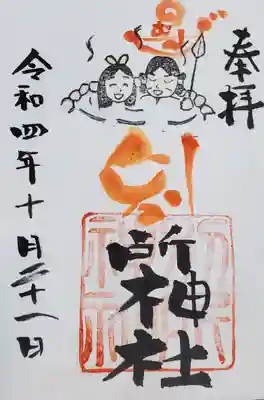 奉拝
別所神社
令和四年十月二十一日